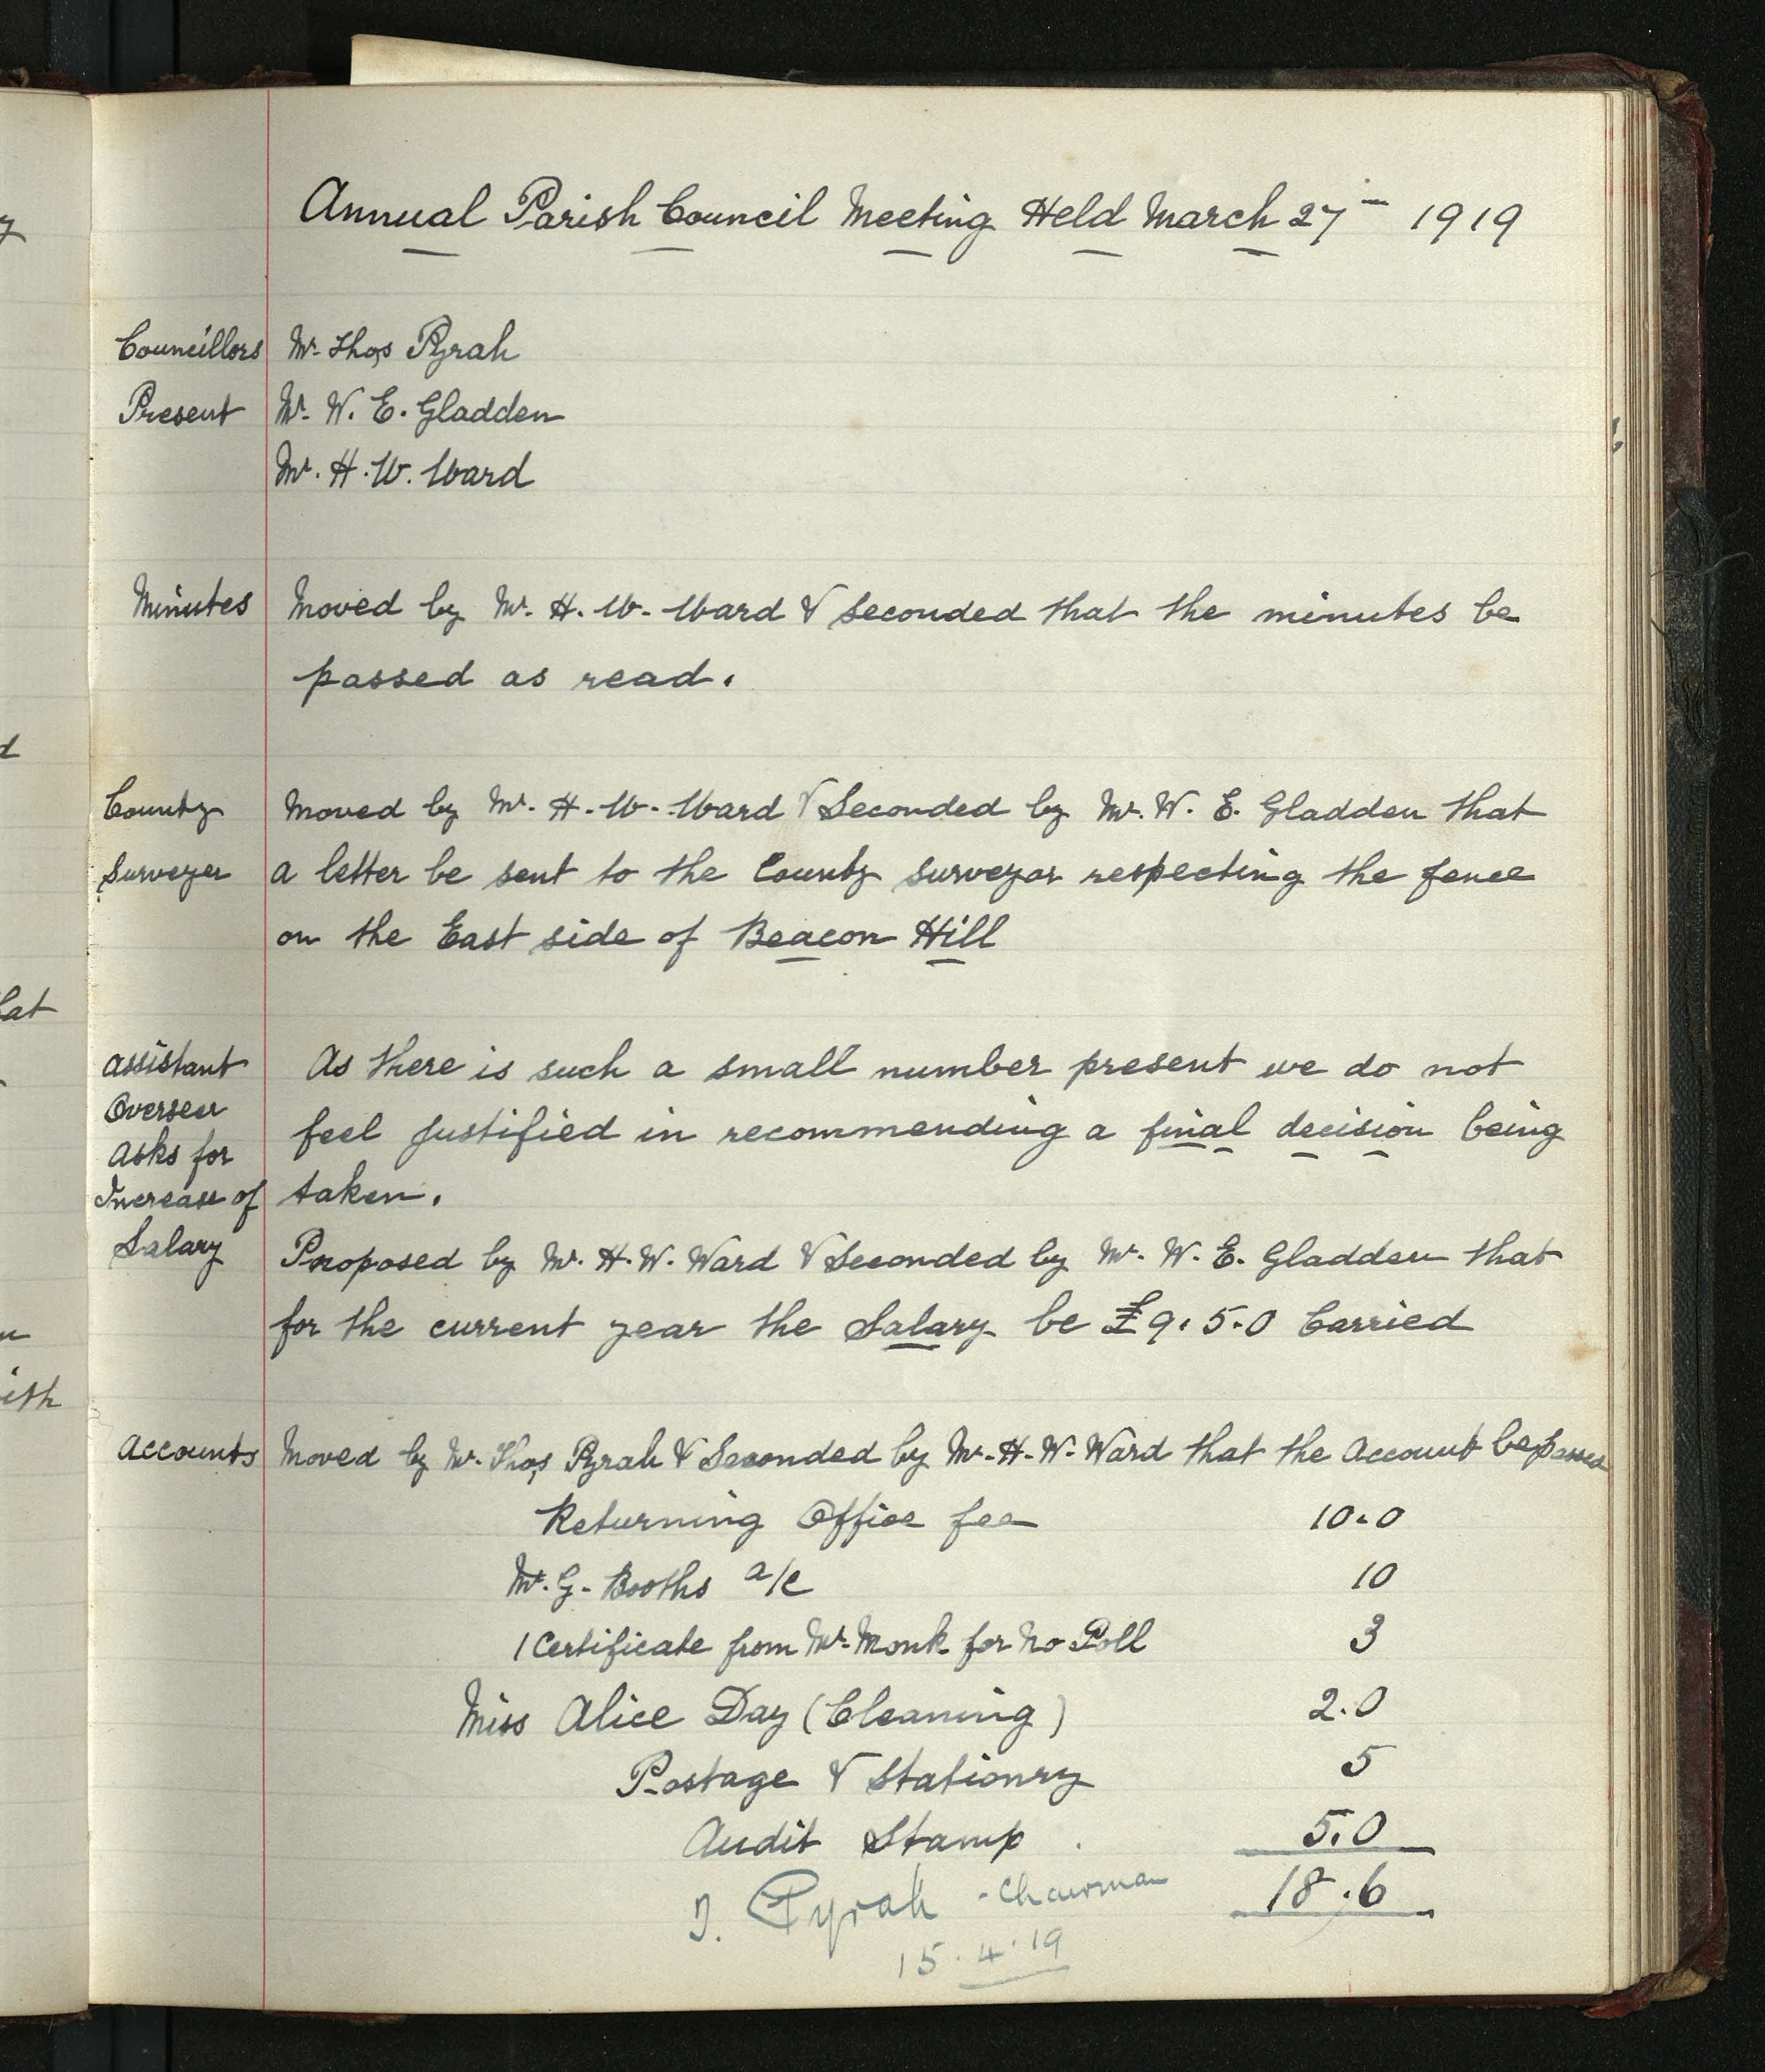 Annual Parish Council Meeting Held March 27th 1919
Councillors Mr. Thos Pyrah
Present Mr. W. E. Gladden
Mr. H. W. Ward
Minutes Moved by Mr. H. W. Ward & Seconded that the minutes be
passed as read.
County Moved by Mr. H. W. Ward & Seconded by Mr. W. E. Gladden that
Surveyer a letter be sent to the County Surveyor respecting the fence
on the East side of Beacon Hill
Assistant As there is such a small number present we do not
Overseer
feel justified in recommending a final decision being
Asks for
Increase of taken.
Salary Proposed by Mr. H. W. Ward & Seconded by Mr. W. E. Gladden that
for the current year the Salary be £9.5.0 Carried
Accounts Moved by Mr. Thos Pyrah & Seconded by Mr. H. W. Ward that the Account be passed
Returning Office fee 10.0
Mr. G. Booths a/c 10
1 Certificate from Mr. Monk for No Poll 3
Miss Alice Day (Cleaning) 2.0
Postage & Stationry 5
Audit Stamp 5.0
T. Pyrah - Chairman 18.6
15.4.19